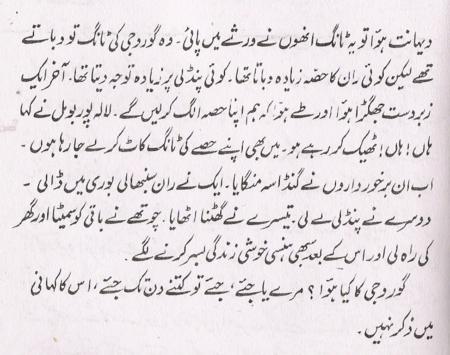 دیہانت ہوَا تو یہ ٹانگ انھوں نے ورثے میں پائی۔ وہ گوروجی کی ٹانگ تو دباتے
تھے لیکن کوئی ران کا حصّہ زیادہ دباتا تھا۔ کوئی پنڈلی پر زیادہ توجہ دیتا تھا۔ آخر ایک
زبردست جھگڑا ہوَا اور طے ہوَا کہ ہم اپنا حصہ الگ کر لیں گے۔ لالہ پوریومل نے کہا
ہاں! ہاں! ٹھیک کر رہے ہو۔ میں بھی اپنے حصے کی ٹانگ کاٹ کر لے جا رہا ہوں۔
اب ان برخورداروں نے گنڈاسہ منگایا۔ ایک نے ران سنبھالی بوری میں ڈالی۔
دوسرے نے پنڈلی لے لی۔ تیسرے نے گھٹنا اٹھایا۔ چوتھے نے باقی کو سمیٹا اور گھر
کی راہ لی اور اس کے بعد سبھی ہنسی خوشی زندگی بسر کرنے لگے۔
گوروجی کا کیا ہوَا؟ مرے یا جئے، جئے تو کتنے دن تک جئے، اس کا کہانی
میں ذکر نہیں۔